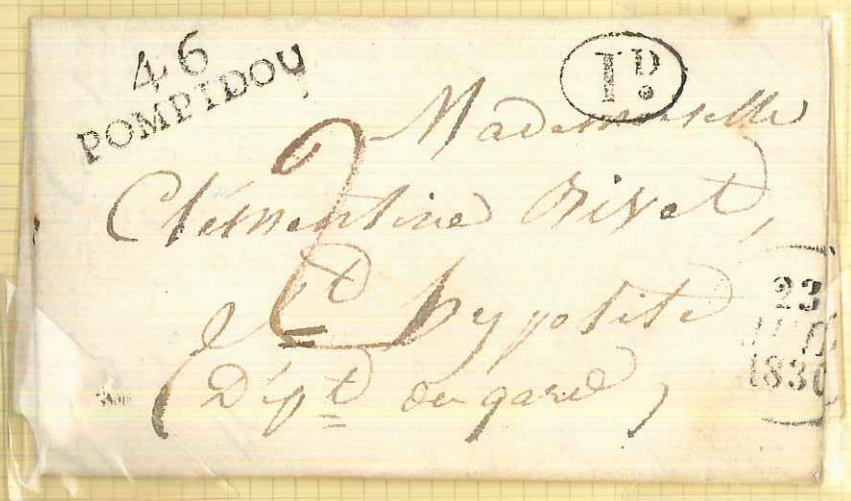 46
POMPIDOU
1D.
Mademoiselle
Clémentine Rivet,
2
St hyppolite
(Dépt du gard)
23
1830